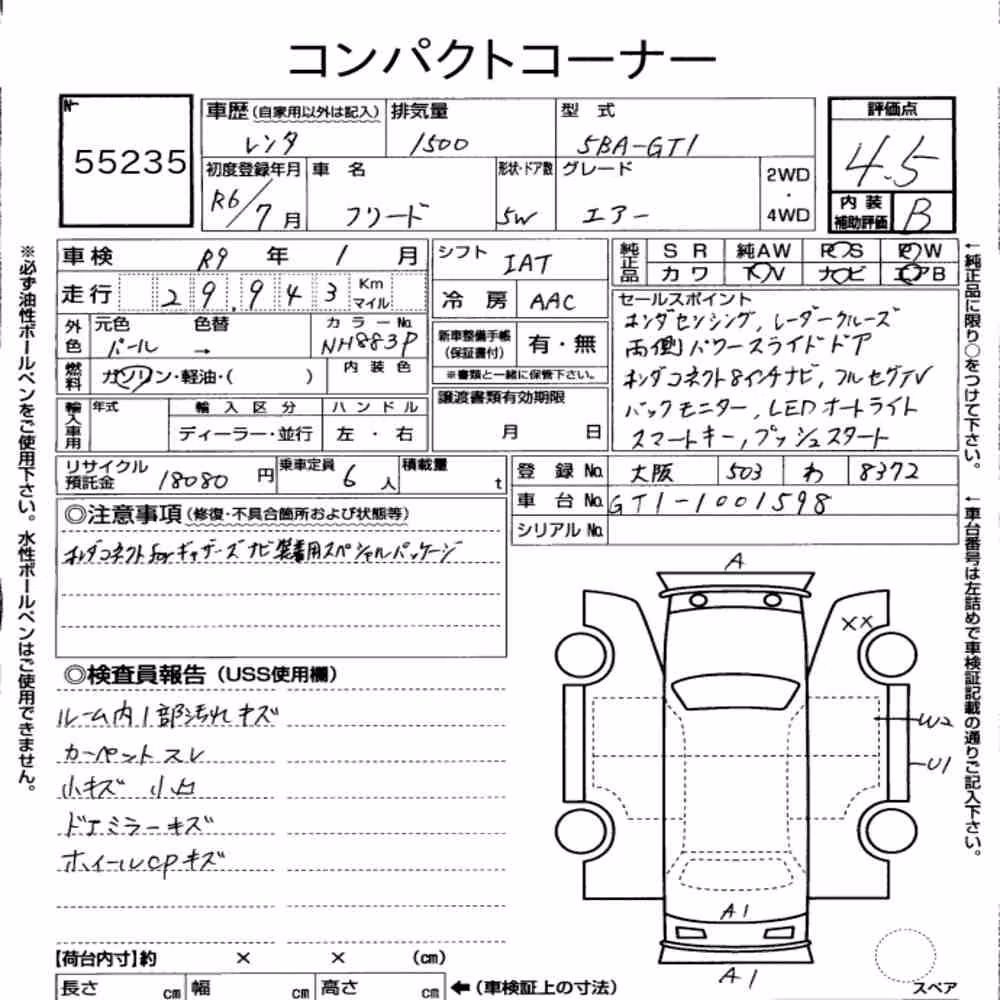 コンパクトコーナー
No
55235
車歴(自家用以外は記入) 排気量 型式
レンタ 1500 5BA-GT1
評価点
4.5
内装補助評価 B
初度登録年月 車名 形状・ドア数 グレード 2WD・4WD
R6/7月 フリード 5W エアー
車検 R9年 1月
走行 29,943 Km マイル
シフト IAT
冷房 AAC
純正品 SR 純AW PS PW
カワ TV ナビ エアB
外色 元色 色替 カラーNo.
パール → NH883P
燃料 ガソリン・軽油・( ) 内装色
新車整備手帳(保証書付) 有・無
※書類と一緒に保管下さい。
セールスポイント
ホンダセンシング, レーダークルーズ
両側パワースライドドア
ホンダコネクト8インチナビ, フルセグTV
バックモニター, LEDオートライト
スマートキー, プッシュスタート
輸入車用 年式 輸入区分 ハンドル
ディーラー・並行 左・右
譲渡書類有効期限
月 日
リサイクル預託金 18080円 乗車定員 6人 積載量 t
登録No. 大阪 503 わ 8372
車台No. GT1-1001598
シリアルNo.
◎注意事項(修復・不具合箇所および状態等)
ホンダコネクトforギャザーズナビ装着用スペシャルパッケージ
◎検査員報告(USS使用欄)
ルーム内1部汚れキズ
カーペットスレ
小キズ 小凹
ドアミラーキズ
ホイールCPキズ
A
××
W2
U1
A1
A1
スペア
【荷台内寸】約 × × (cm)
長さ cm 幅 cm 高さ cm ←(車検証上の寸法)
※必ず油性ボールペンをご使用下さい。水性ボールペンはご使用できません。
←純正品に限り○をつけて下さい。
←車台番号は左詰めで車検証記載の通りご記入下さい。